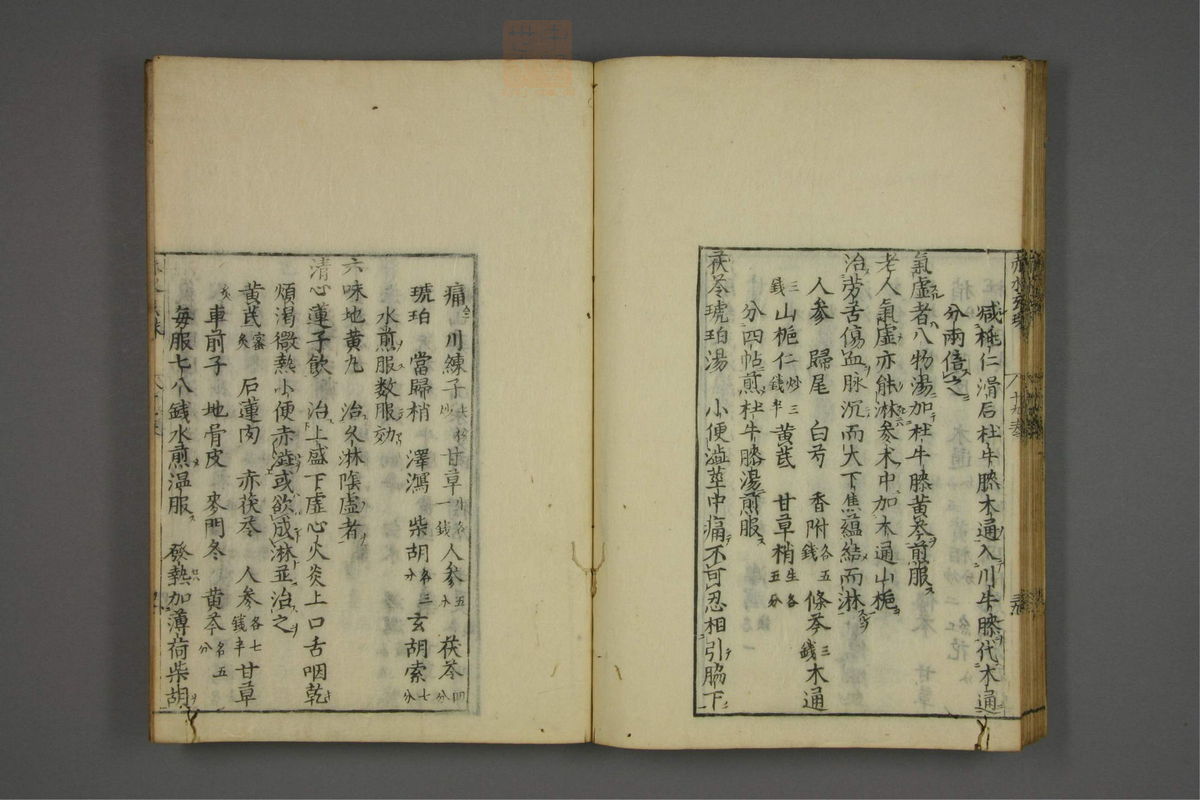 減桃仁滑石杜牛膝木通入川牛膝代木通
分兩倍之
氣虛者八物湯加杜牛膝黃芩煎服
老人氣虛亦能淋參朮中加木通山梔
治勞苦傷血脉沉而大下焦蘊結而淋
人参 歸尾 白芍 香附各五錢 條芩三錢 木通
三錢 山梔仁炒三錢半 黃芪 甘草梢生各五分
分四帖煎杜牛膝湯煎服
茯苓琥珀湯 小便澁莖中痛不可忍相引脇下
痛 川練子 甘草生各一錢 人参五分 茯苓四分
琥珀 當歸梢 澤瀉 柴胡各三分 玄胡索七分
水煎服数服効
六味地黃丸 治久淋陰虛者
清心蓮子飲 治上盛下虛心火炎上口舌咽乾
煩渴微熱小便赤澁或欲成淋並治之
黃芪蜜炙 石蓮肉 赤茯苓 人参各七錢半 甘草
炙 車前子 地骨皮 麥門冬 黃芩各五分
每服七八錢水煎温服 發熱加薄荷柴胡